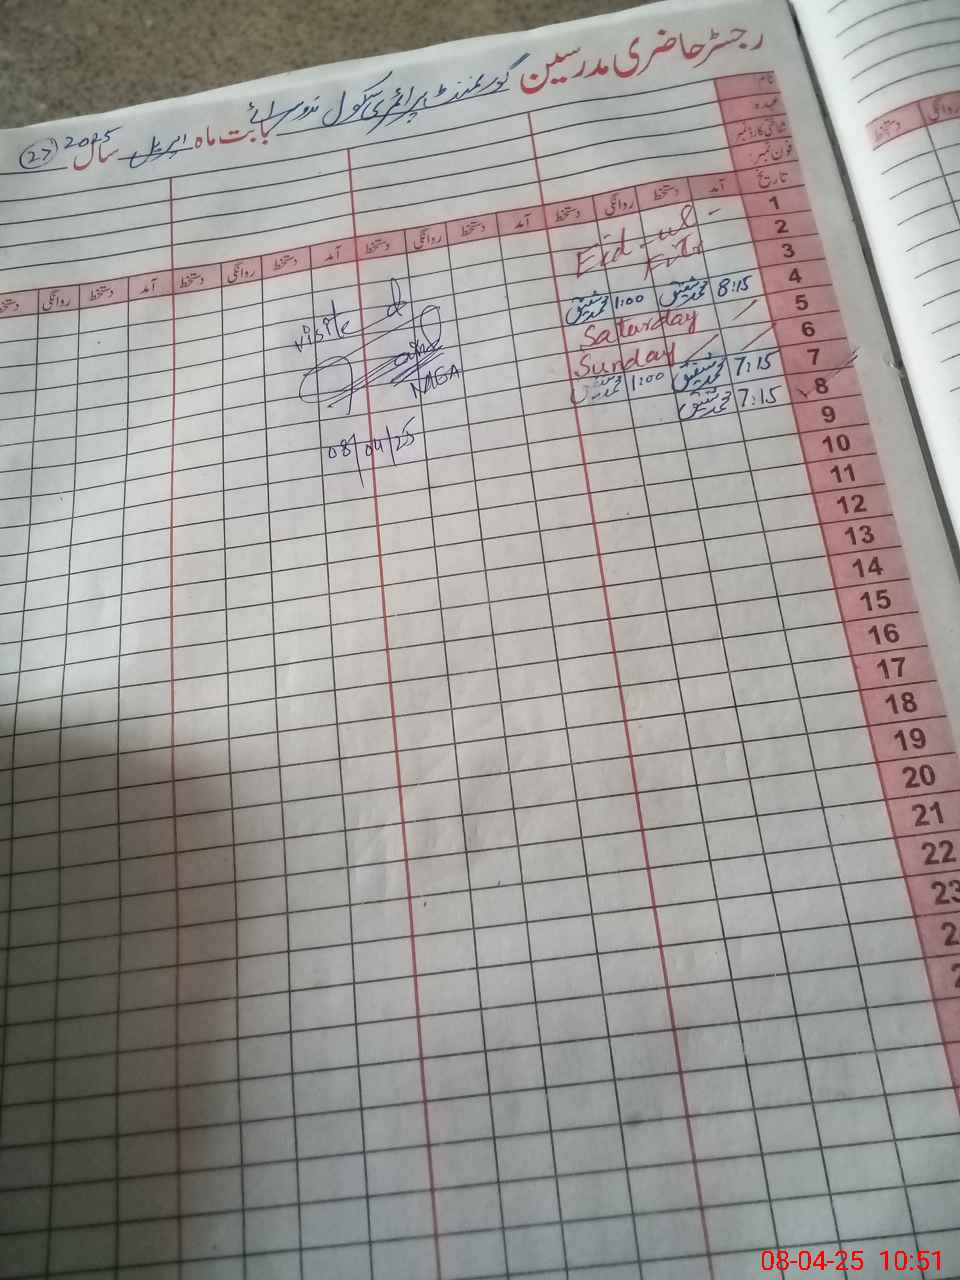 رجسٹر حاضری مدرسین گورنمنٹ پرائمری سکول
بابت ماہ اپریل سال 2025 (27)
نام
عہدہ
شناختی کارڈ نمبر
فون نمبر:
تاریخ آمد دستخط روانگی دستخط آمد دستخط روانگی دستخط آمد دستخط روانگی دستخط آمد دستخط روانگی دستخط
1 Eid-ul
2 Fitr
3
4 8:15 محمد شفیق 1:00 محمد شفیق
5 Saturday
6 Sunday
7 7:15 محمد شفیق 1:00 محمد شفیق
8 7:15 محمد شفیق
9
10
11
12
13
14
15
16
17
18
19
20
21
22
23
visite d
and
08/04/25
روانگی دستخط
08-04-25 10:51